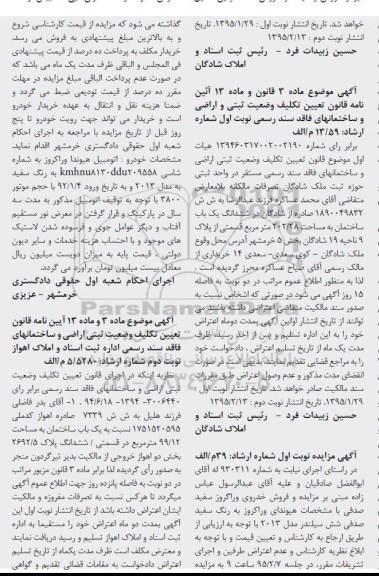 خواهد شد. تاریخ انتشار نوبت اول : ۱۳۹۵/۱/۲۹. تاریخ
انتشار نوبت دوم : ۱۳۹۵/۲/۱۳
حسین زبیدات فرد - رئیس ثبت اسناد و
املاک شادگان
آگهی موضوع ماده ۳ قانون و ماده ۱۳ آئین
نامه قانون تعیین تکلیف وضعیت ثبتی و اراضی
و ساختمانهای فاقد سند رسمی نوبت اول شماره
ارشاد: ۱۳/۵۹ م/الف
برابر رای شماره ۱۳۹۴۶۰۳۱۷۰۰۲۰۰۲۱۹۰ هیات
اول موضوع قانون تعیین تکلیف وضعیت ثبتی اراضی
و ساختمانهای فاقد سند رسمی مستقر در واحد ثبتی
حوزه ثبت ملک شادگان تصرفات مالکانه بلامعارض
متقاضی آقای محمد عساکره فرزند عبدالرضا به ش ش
۱۸۹۰۰۴۹۸۳۲ صادره از شادگان در ششدانگ یک باب
ساختمان به مساحت ۲۰۲/۲۸ متر مربع قسمتی از پلاک
۹ ناحیه ۱۹ شادگان بخش ۵ خرمشهر آدرس محل وقوع
ملک: شادگان - کوی سعدی- سعدی ۱۴ خریداری از
مالک رسمی آقای صباح عساکره محرز گردیده است .
لذا به منظور اطلاع عموم مراتب در دو نوبت به فاصله
۱۵ روز آگهی می شود در صورتی که اشخاص نسبت به
صدور سند مالکیت متقاضی اعتراضی داشته باشند می
توانند از تاریخ انتشار اولین آگهی بمدت دوماه اعتراض
خود را به این اداره تسلیم و پس از اخذ رسید، ظرف
مدت یک ماه از تاریخ تسلیم اعتراض، دادخواست خود
را به مراجع قضایی تقدیم نمایند. بدیهی است در صورت
انقضای مدت مذکور و عدم وصول اعتراض طبق مقررات
سند مالکیت صادر خواهد شد. تاریخ انتشار نوبت اول :
۱۳۹۵/۱/۲۹. تاریخ انتشار نوبت دوم : ۱۳۹۵/۲/۱۳
حسین زبیدات فرد - رئیس ثبت اسناد و
املاک شادگان
آگهی مزایده نوبت اول شماره ارشاد: ۳۹م/الف
در راستای اجرای نیابت به شماره ۹۳۰۳۱۱ له آقای
ابوالفضل صادقیان و علیه آقای عبدالرسول عباس
زاده مبنی بر مزایده و فروش خدروی وراکروز سفید
صدفی با مشخصات هیوندای وراکروز به رنگ سفید
صدفی شش سیلندر مدل ۲۰۱۳ با توجه به ارزیابی از
طریق ارجاع به کارشناس و تعیین قیمت و با توجه به
ابلاغ نظریه کارشناس و عدم اعتراض طرفین و اجرای
تشریفات مقرر، در جلسه ۹۵/۲/۷ ساعت ۹ به مزایده
گذاشته می شود که مزایده از قیمت کارشناسی شروع
و به بالاترین مبلغ پیشنهادی به فروش می رسد.
خریدار مکلف به پرداخت ده درصد از قیمت پیشنهادی
فی المجلس و الباقی ظرف مدت یک ماه می باشد که
در صورت عدم پرداخت الباقی مبلغ مزایده در مهلت
مقرر ده درصد از قیمت تودیعی ضبط می گردد و
ضمنا هزینه نقل و انتقال به عهده خریدار خودرو
است و خریدار می تواند جهت رویت خودرو تا پنج
روز قبل از تاریخ مزایده با مراجعه به اجرای احکام
شعبه اول حقوقی دادگستری خرمشهر اقدام نماید.
مشخصات خودرو : اتومبیل هیوندا وراکروز به شماره
شاسی kmhnu۸۱۳۰ddu۲۰۹۵۵۸ به رنگ سفید
به مدل ۲۰۱۳ و به تاریخ ورود ۹۲/۱/۴ با حجم موتور
۳۸۰۰ با توجه به توقیف اتومبیل مذکور به مدت سه
سال در پارکینگ و قرار گرفتن در معرض نور مستقیم
آفتاب و دیگر عوامل جوی و فرسوده شدن لاستیک
های موجود و با احتساب هزینه خدمات و سایر دیون
دولتی ، قیمت پایه به میزان دویست میلیون ریال
معادل بیست میلیون تومان برآورد می گردد.
اجرای احکام شعبه اول حقوقی دادگستری
خرمشهر - عزیزی
آگهی موضوع ماده ۳ و ماده ۱۳ آیین نامه قانون
تعیین تکلیف وضعیت ثبتی اراضی و ساختمانهای
فاقد سند رسمی اداره ثبت اسناد و املاک اهواز
نوبت دوم شماره ارشاد: ۵/۵۲۸۰ م/الف
نظربه اینکه در اجرای قانون تعیین تکلیف وضعیت
ثبتی اراضی و ساختمانهای فاقد سند رسمی برابر رای
۳۰۰۶۴۴۰-۱۳۹۴- ۹۴/۶/۱۸ . ۱- آقای بدر فاضلی
فرزند هلیل به ش ش ۷۷۳۹ صادره اهواز کدملی
۱۷۵۱۵۲۰۵۹۵ نسبت به یک باب ساختمان به مساحت
۹۹/۱۲ مترمربع در قسمتی / ششدانگ پلاک ۲۶۹۲/۵
بخش دو اهواز خروجی از مالکیت بدیر تیرگردون منجر
به صدور رأی گردیده لذا برابر ماده ۳ قانون مزبور مراتب
در دو نوبت به فاصله پانزده روز جهت اطلاع عموم آگهی
میگردد تا هرکس نسبت به تصرفات مفروزه و مالکیت
ایشان اعتراض داشته باشد از تاریخ انتشار نوبت اول این
آگهی بمدت دو ماه اعتراض خود را مستقیما به اداره
ثبت اسناد و املاک اهواز تسلیم و رسید دریافت نمایند
و معترض مکلف است ظرف مدت یکماه از تاریخ تسلیم
اعتراض دادخواست به مقامات قضائی تقدیم و گواهی